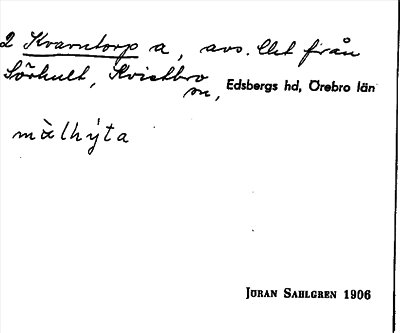 2 Kvarntorp a, avs. likt från
Sörhult, Kvistbro
sn, Edsbergs hd, Örebro län
màlhýta
JÖRAN SAHLGREN 1906